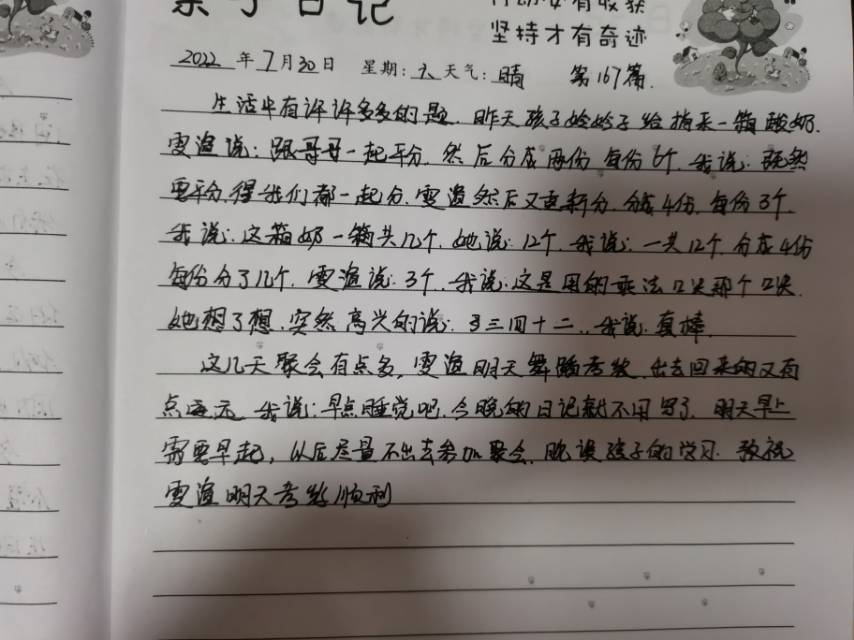 亲子日记
行动必有收获
坚持才有奇迹
2022年7月30日 星期:六 天气:晴 第167篇.
生活中有许许多多的题.昨天孩子妗妗子给捎来一箱酸奶.
雯渲说:跟哥哥一起平分.然后分成两份每份6个.我说:既然
要平分,得我们都一起分.雯渲然后又重新分.分成4份.每份3个.
我说:这箱奶一箱共几个.她说:12个.我说:一共12个.分成4份
每份分了几个.雯渲说:3个.我说:这是用的乘法口诀那个口诀.
她想了想.突然高兴的说:三四十二.我说.真棒.
这几天聚会有点多.雯渲明天舞蹈考级.出去回来的又有
点 我说:早点睡觉吧.今晚的日记就不用写了.明天早上
需要早起,以后尽量不出去参加聚会.耽误孩子的学习.敬祝
雯渲明天考级顺利